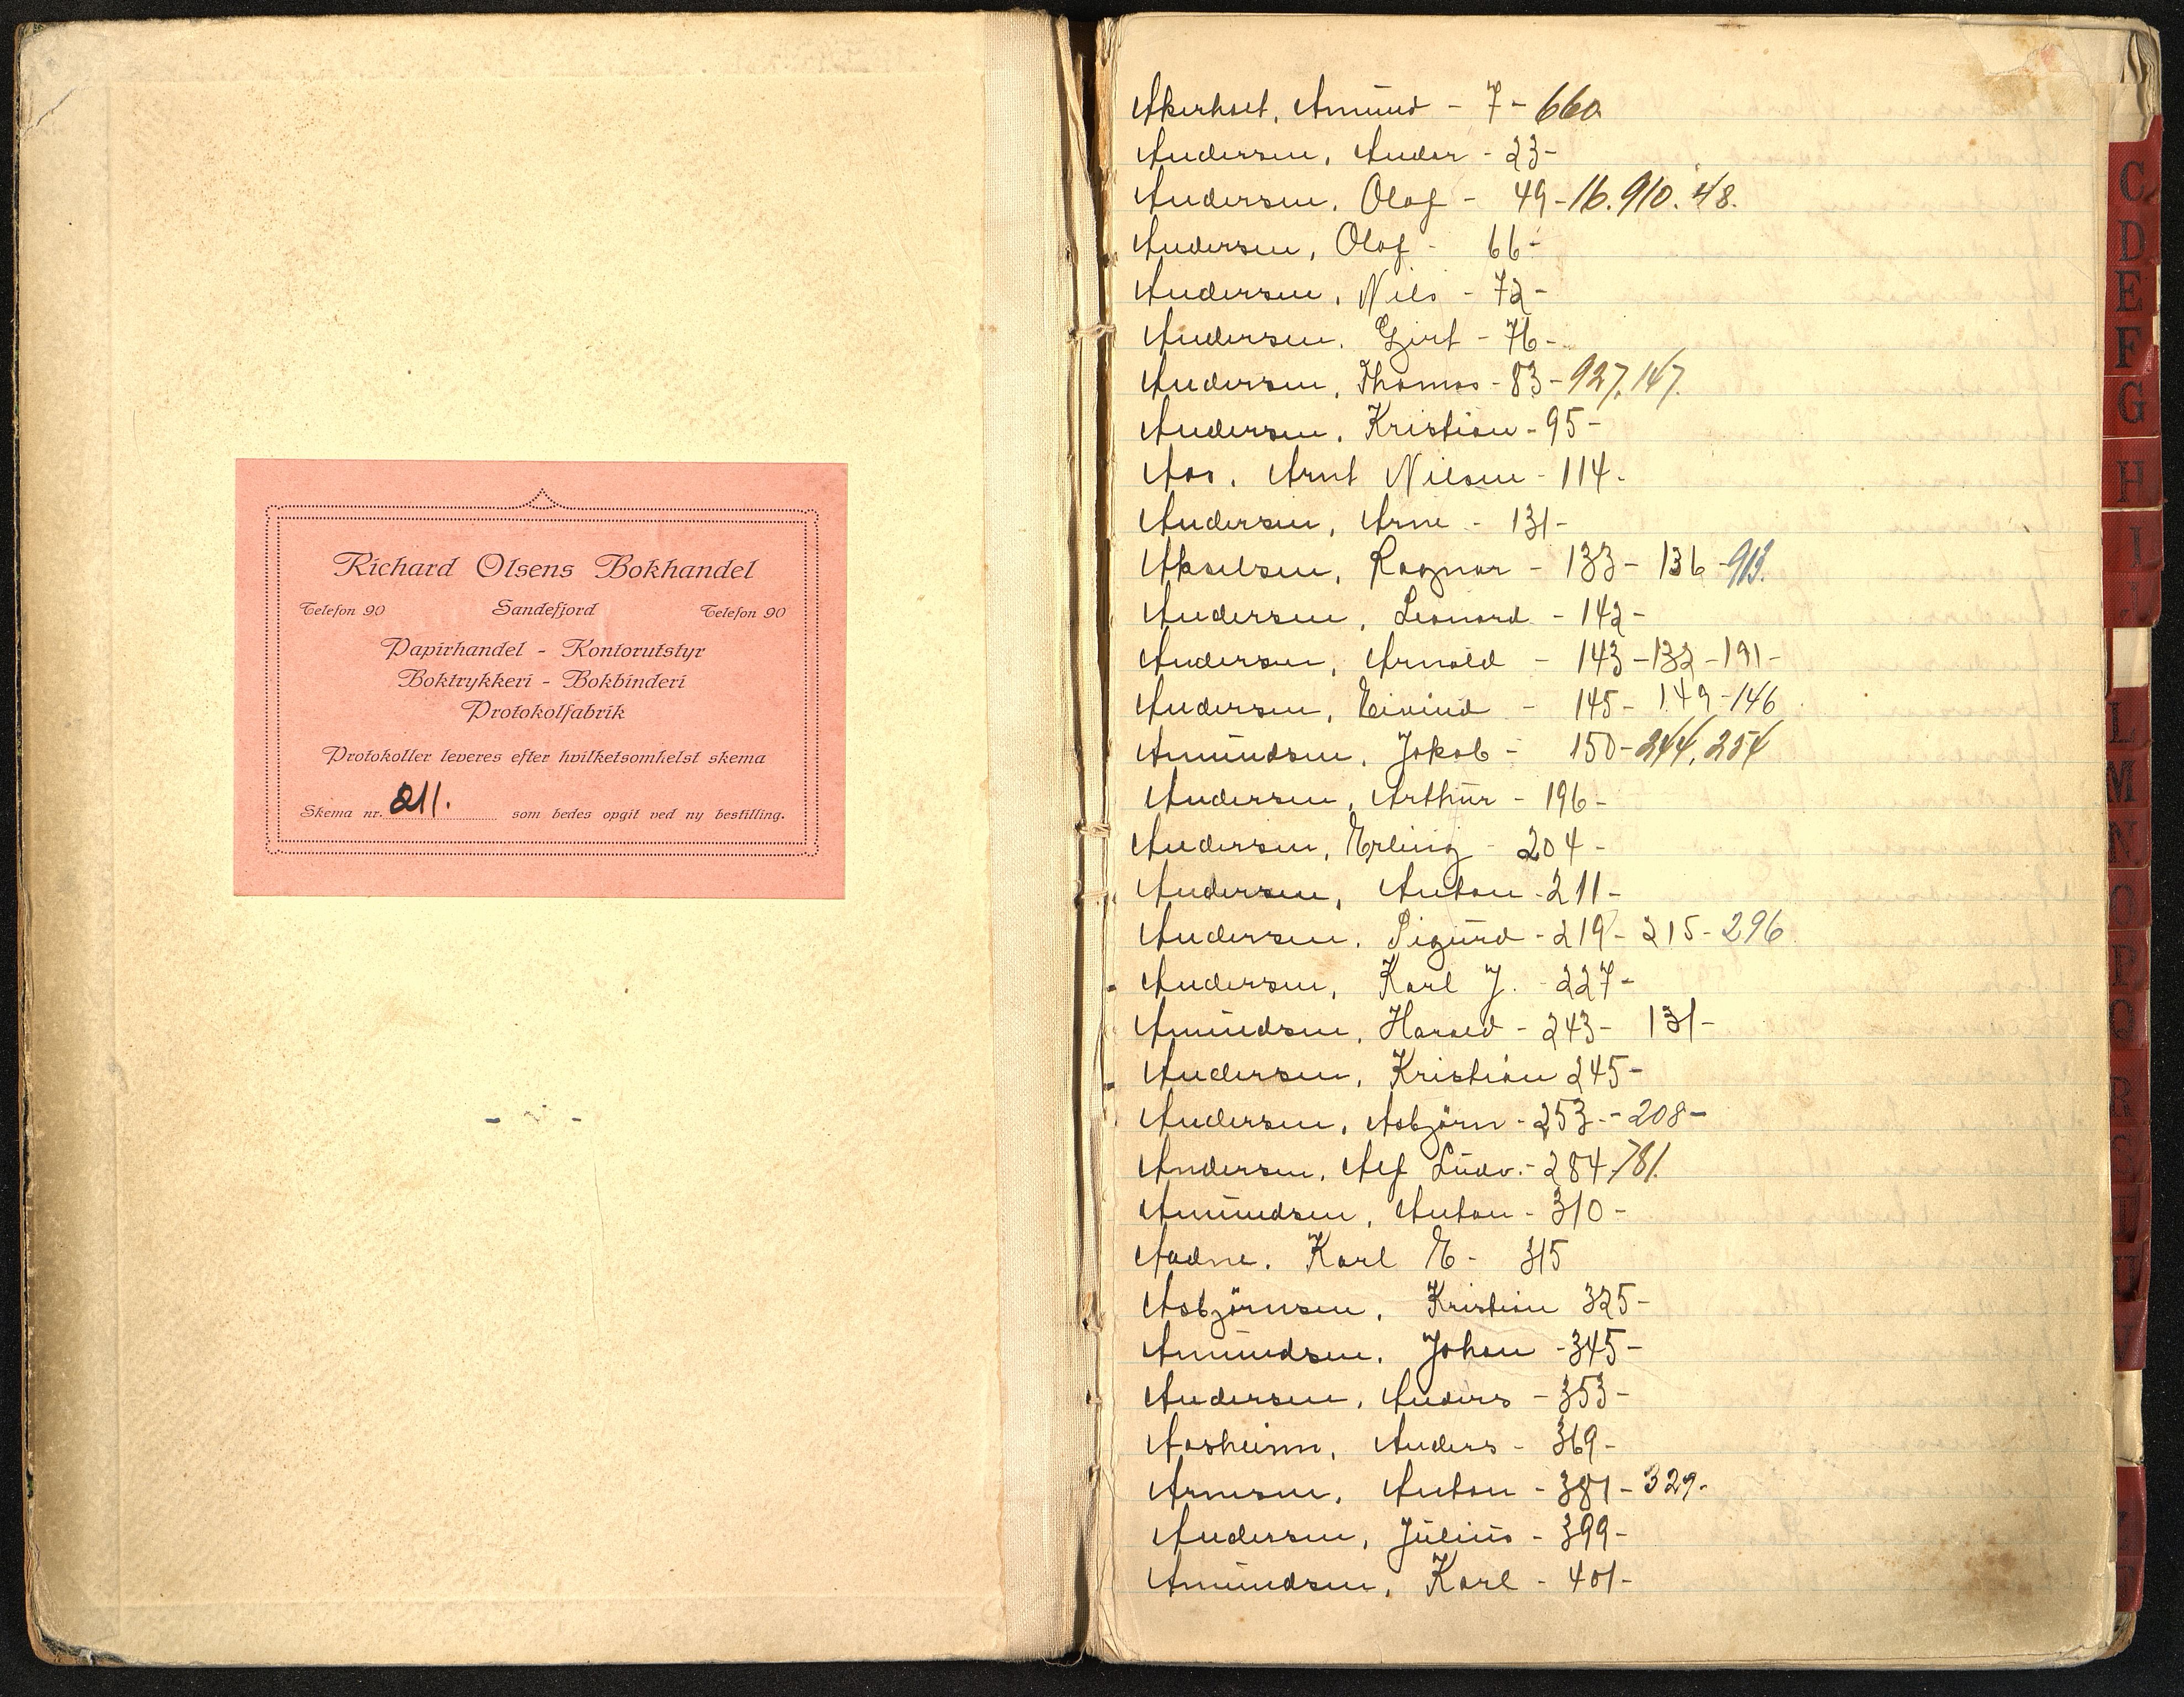 Richard Olsens Bokhandel
Telefon 90 Sandefjord Telefon 90
Papirhandel - Kontorutstyr
Boktrykkeri - Bokbinderi
Protokolfabrik
Protokoller leveres efter hvilketsomhelst skema
Skema nr. 211. som bedes opgit ved ny bestilling.
Akerholt, Amund - 7 - 660
Andersen, Ander - 23 -
Andersen, Olaf - 49 - 16. 910. 48.
Andersen, Olaf - 66 -
Andersen, Nils - 72 -
Andersen, - 76 -
Andersen, Thomas - 83 - 927, 147.
Andersen, Kristian - 95 -
Aas, Arnt Nilsen - 114 -
Andersen, Arne - 131 -
Akselsen, Ragnar - 133 - 136 - 913.
Andersen, Leonard - 142 -
Andersen, Arnold - 143 - 132 - 191 -
Andersen, Eivind - 145 - 149 - 146
Amundsen, Jakob - 150 - 244, 254
Andersen, Arthur - 196 -
Andersen, Erling - 204 -
Andersen, Anton - 211 -
Andersen, Sigurd - 219 - 215 - 296
Andersen, Karl J. - 227 -
Amundsen, Harald - 243 - 131 -
Andersen, Kristian 245 -
Andersen, Asbjörn - 253 - - 208 -
Andersen, Alf Ludv. - 284 - 781.
Amundsen, Anton - 310 -
Aadne, Karl E - 315
Asbjörnsen, Kristian 325 -
Amundsen, Johan - 345 -
Andersen, Anders - 353 -
Aasheim, Anders - 369 -
Arnesen, Anton - 381 - 329 -
Andersen, Julius - 399 -
Amundsen, Karl - 401 -
C
D
E
F
G
H
I
J
L
M
N
O
P
Q
R
S
T
U
V